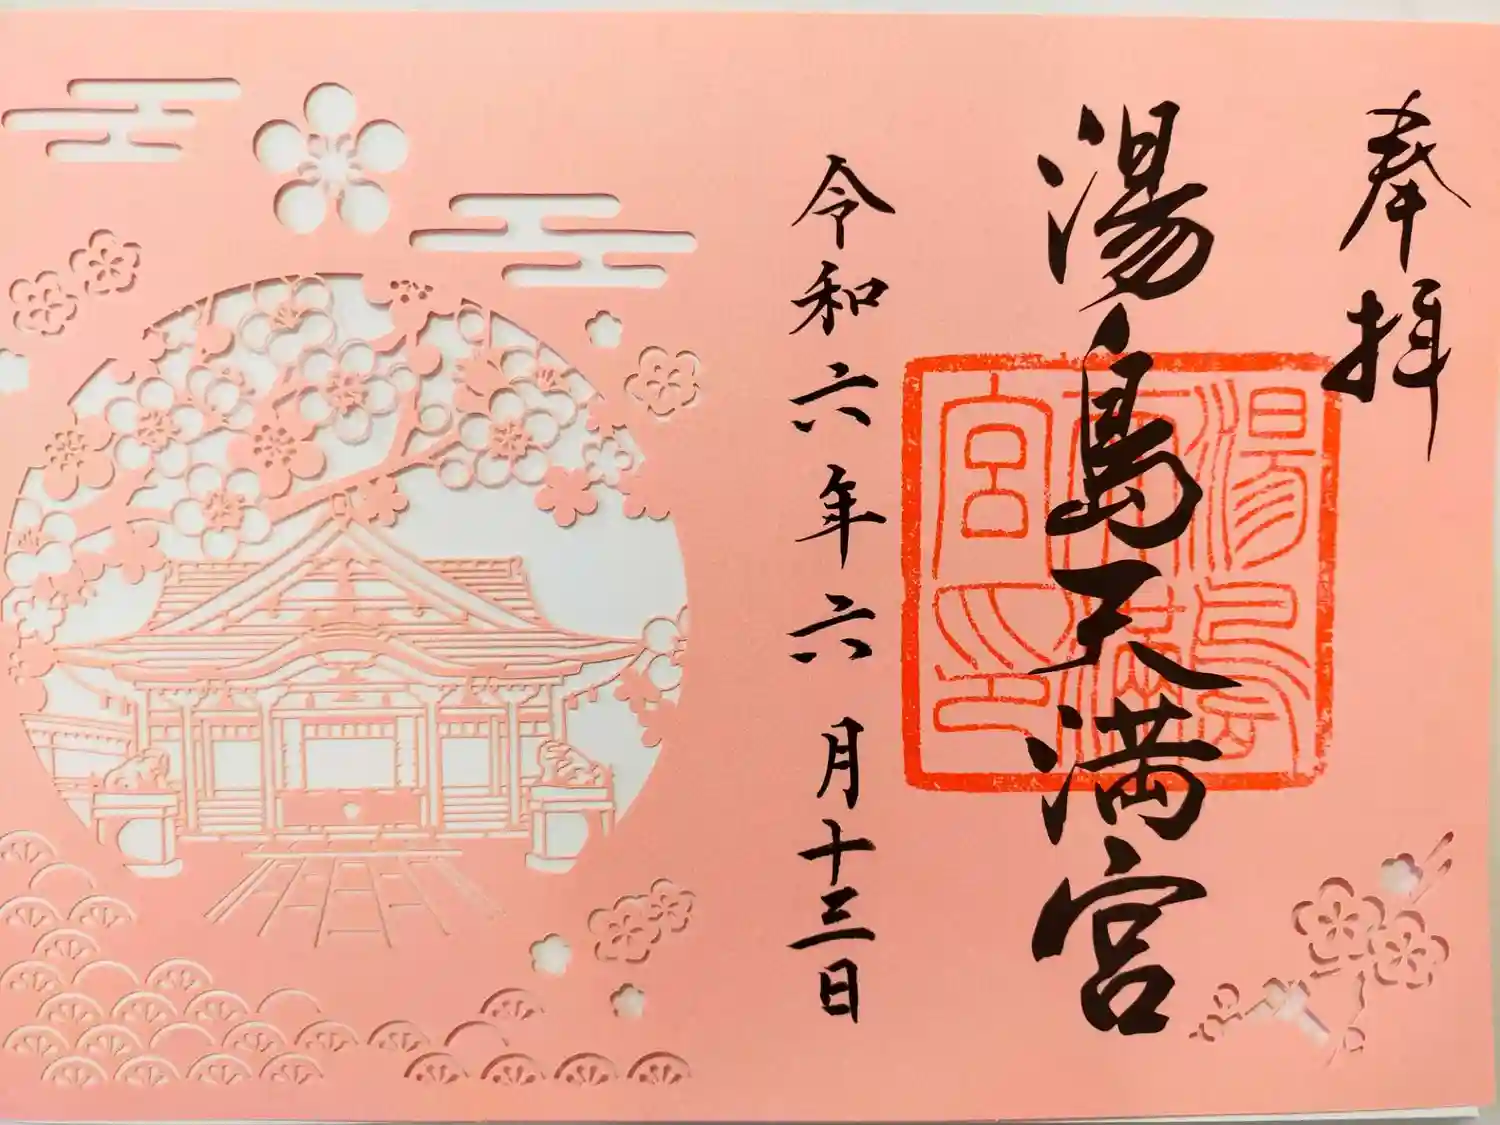 奉拝
湯島天満宮
湯島天満宮印
令和六年六月十三日